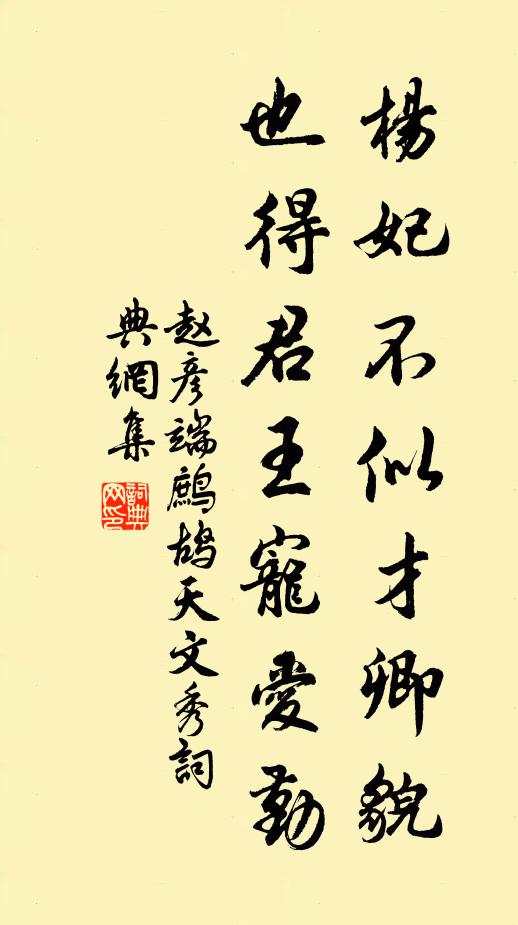 楊妃不似才卿貌
也得君王寵愛勤
赵彦端鷓鴣天文秀詞
典網集
詞典
网印